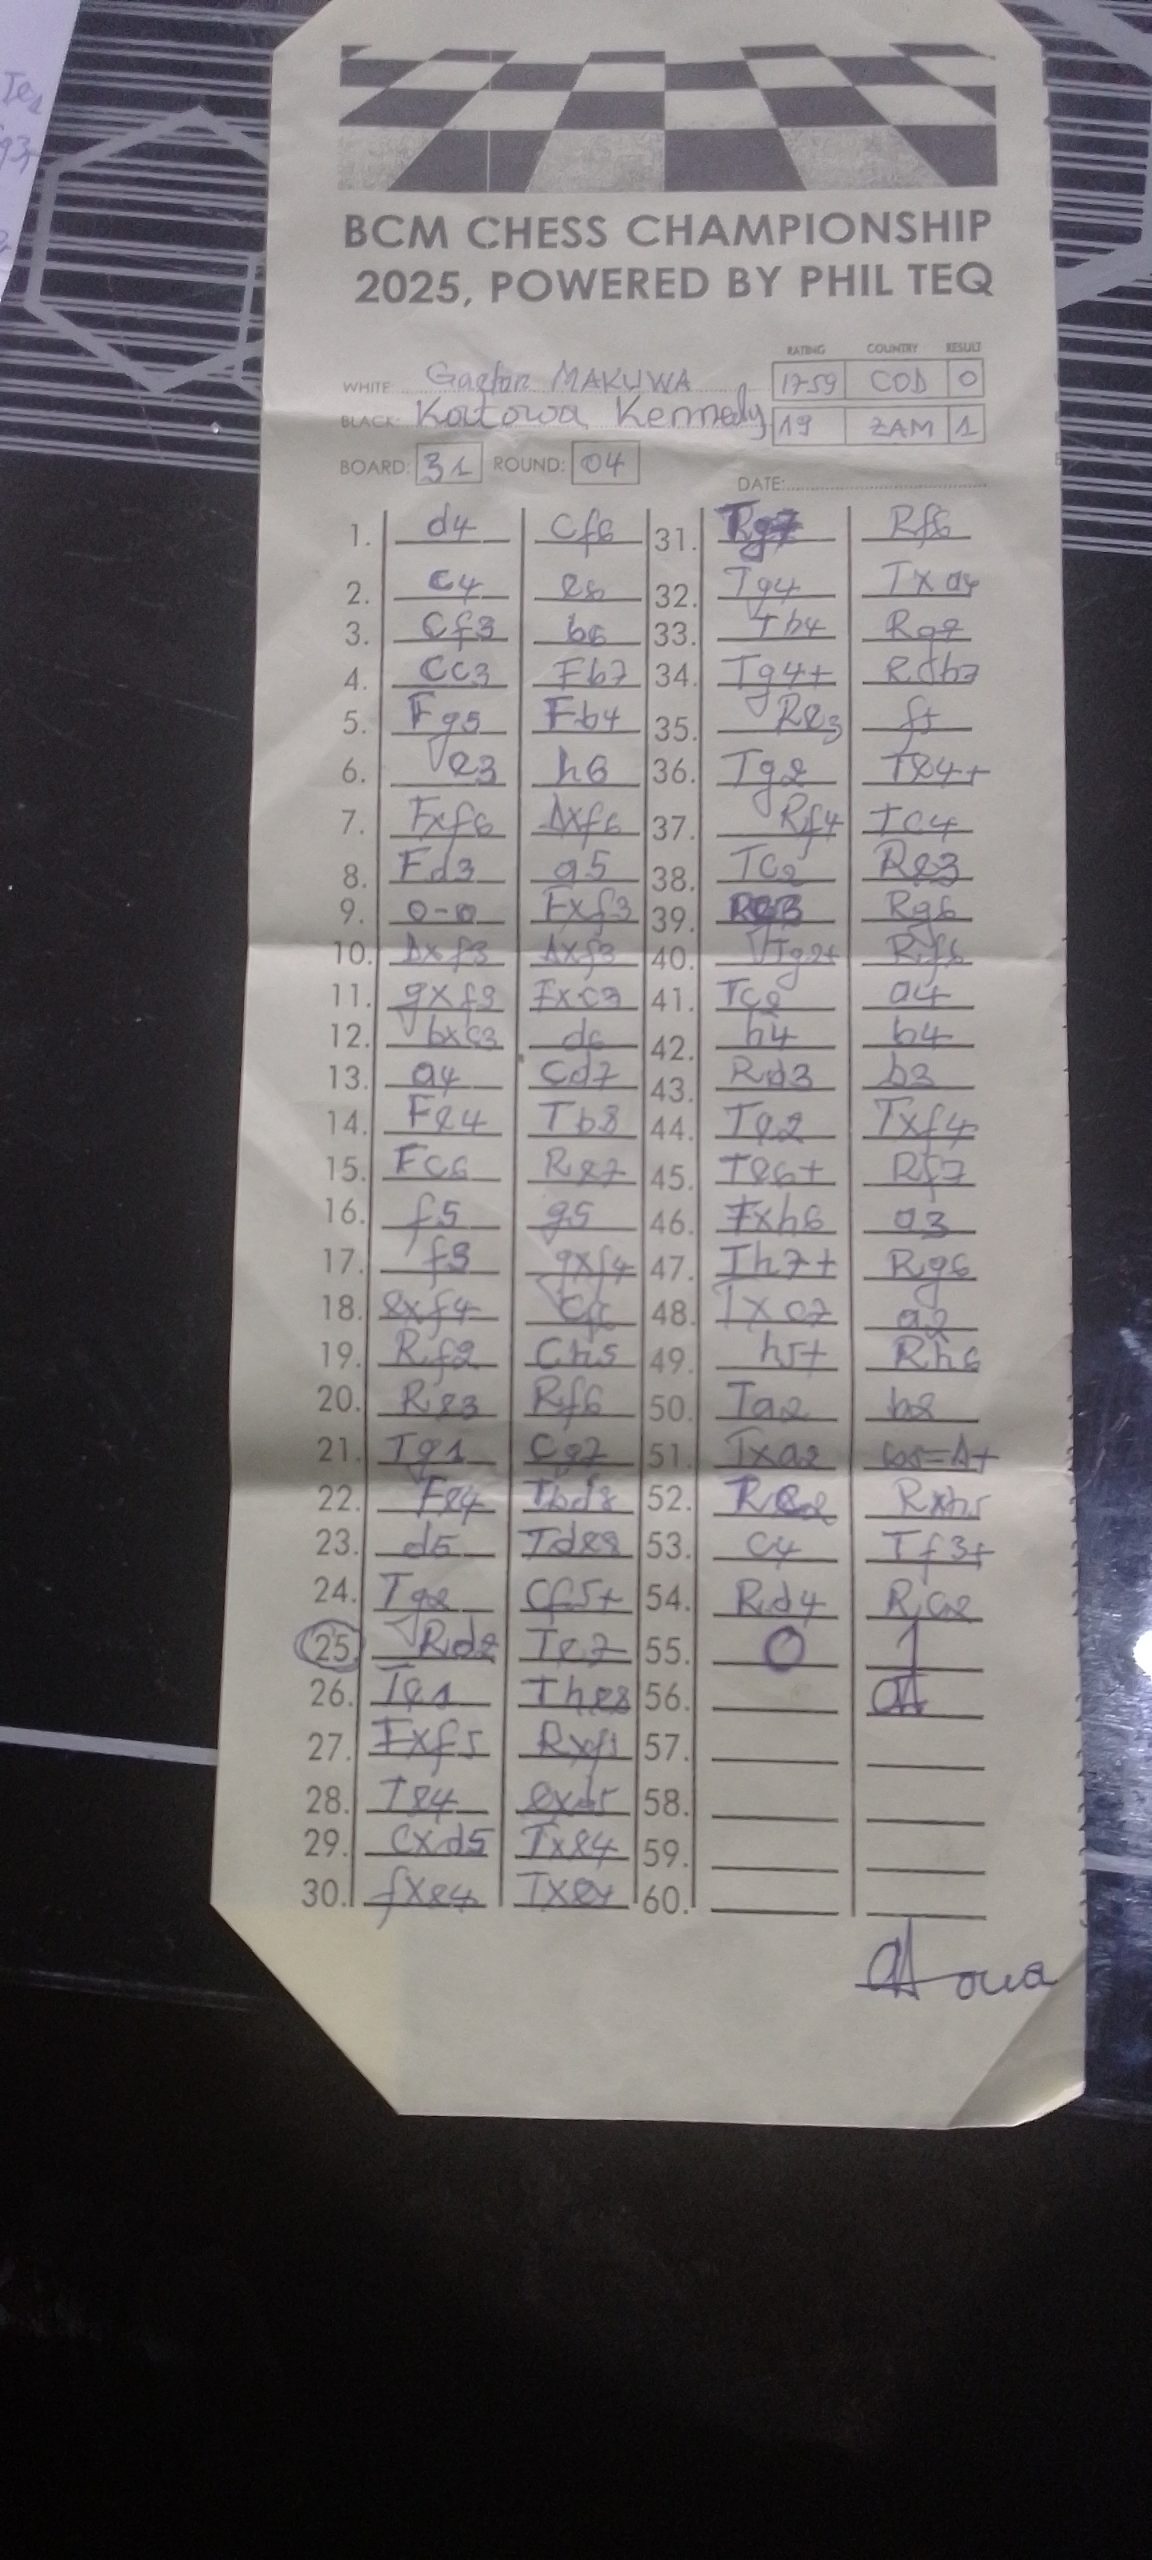 BCM CHESS CHAMPIONSHIP
2025, POWERED BY PHIL TEQ
RATING COUNTRY RESULT
WHITE: Gaetan MAKUWA 1759 COD 0
BLACK: Katowa Kennedy 19 ZAM 1
BOARD: 31 ROUND: 04
DATE:
1. d4 Cf6 31. Rf6
2. c4 e6 32. Tg4 Txa4
3. Cf3 b6 33. Th4 Rg7
4. Cc3 Fb7 34. Tg4+
5. Fg5 Fb4 35. Re3 f5
6. e3 h6 36. Tg2 Te4+
7. Fxf6 Dxf6 37. Rf4 Tc4
8. Fd3 a5 38. Tc2 Re3
9. 0-0 Fxf3 39. Rg6
10. Dxf3 Dxf3 40. Tg2+ Rf6
11. gxf3 Fxc3 41. Tc2 a4
12. bxc3 d6 42. h4 b4
13. a4 Cd7 43. Rd3 b3
14. Fe4 Tb8 44. Te2 Txf4
15. Fc6 Re7 45. Te6+ Rf7
16. f5 g5 46. Txh6 a3
17. f3 gxf4 47. Th7+ Rg6
18. exf4 Cf6 48. Txc7 a2
19. Rf2 Ch5 49. h5+ Rh6
20. Re3 Rf6 50. Ta2 b2
21. Tg1 Cg7 51. Txa2
22. Fe4 Tbd8 52. Rxh5
23. d5 Tde8 53. c4 Tf3+
24. Tg2 Cf5+ 54. Rd4
25. Rd2 Te7 55. 0 1
26. Te1 The8 56.
27. Fxf5 Rxf5 57.
28. Te4 exd5 58.
29. cxd5 Txe4 59.
30. fxe4 Txe4 60.